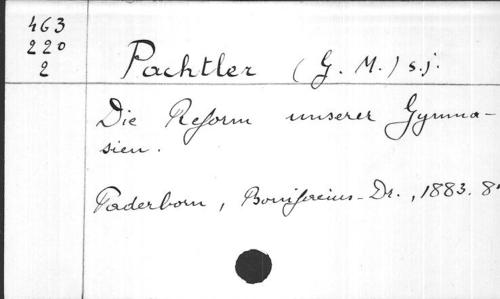 463
220
2
Pachtler (G. M.) s.j.
Die Reform unserer Gymna-
sien.
Paderborn, Bonifacius-Dr., 1883. 8°